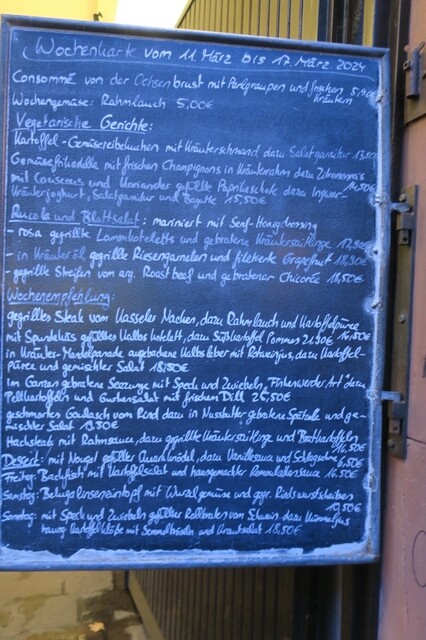 Wochenkarte vom 11. März bis 17. März 2024
Consommé von der Ochsenbrust mit Perlgraupen und frischen 5,90€
Kräutern
Wochengemüse: Rahmlauch 5,00€
Vegetarische Gerichte:
Kartoffel-Gemüsereibekuchen mit Kräuterschmand dazu Salatgarnitur
Gemüsefrikadelle mit frischen Champignons in Kräuterrahm dazu
mit Couscous und Koriander gefüllte Paprikaschote dazu Ingwer-
Kräuterjoghurt, Salatgarnitur und Bagutte 15,50€
Rucola und Blattsalat: mariniert mit Senf-Honigdressing
- rosa gegrillte Lammkoteletts und gebratene Kräutersaitlinge 17,90€
- in Kräuteröl gegrillte Riesengarnelen und filetierte Grapefruit 18,90€
- gegrillte Streifen von arg. Roastbeef und gebratener Chicorée 18,50€
Wochenempfehlung:
gegrilltes Steak vom Kasseler Nacken, dazu Rahmlauch und Kartoffelpüree
mit Spundekäs gefülltes Kalbskotelett, dazu Süßkartoffel Pommes 21,90€ 16,50€
in Kräuter-Mandelpanade ausgebackene Kalbsleber mit Rotweinjus, dazu Kartoffel-
püree und gemischter Salat 18,50€
im Ganzen gebratene Seezunge mit Speck und Zwiebeln „Finkenwerder Art" dazu
Pellkartoffeln und Gurkensalat mit frischen Dill 26,50€
geschmortes Goulasch vom Rind dazu in Nussbutter gebratene Spätzle und ge-
mischter Salat
Hacksteak mit Rahmsauce, dazu gegrillte Kräutersaitlinge und Bratkartoffeln
16,50€
Dessert: mit Nougat gefüllter Quarkknödel, dazu Vanillesauce und Schlagsahne 6,50€
Freitag: Backfisch mit Kartoffelsalat und hausgemachter Remouladensauce 16,50€
Samstag: Belugalinseneintopf mit Wurzelgemüse und gegr. Rindswurstscheiben
10,50€
Sonntag: mit Speck und Zwiebeln gefüllter Rollbraten vom Schwein dazu Kümmeljus
hausg. Kartoffelklöße mit Semmelbröseln und Krautsalat 18,50€